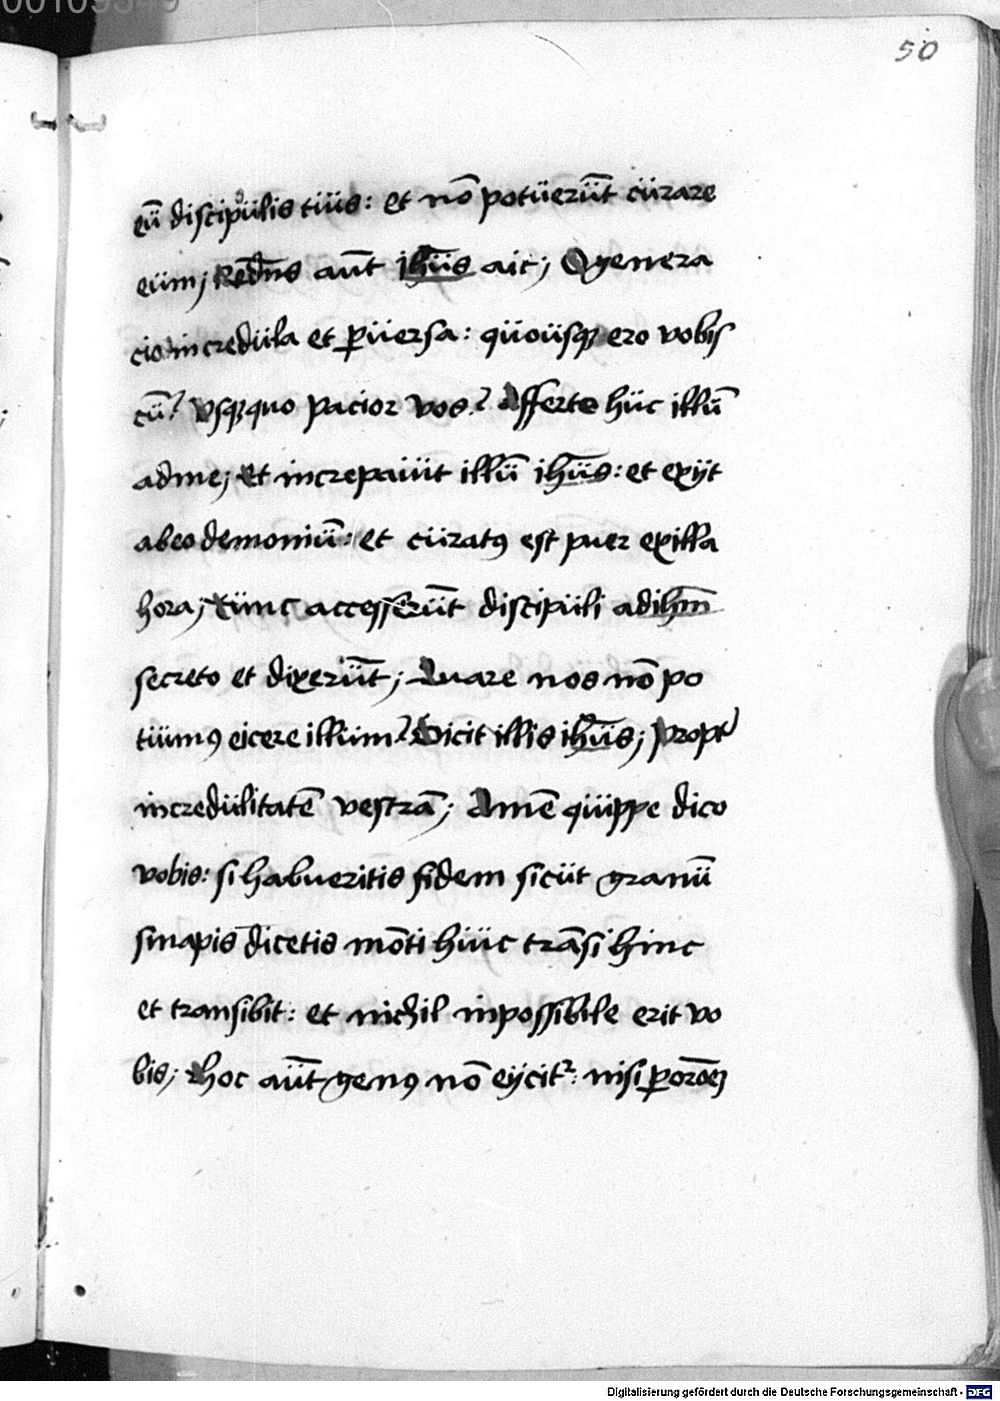 50
eū discipulis tüis: et nō potüerūt cürare
eüm; Rēdns aūt ihūs ait; O genera
cio incredüla et ꝑüersa: qüoüsqꝫ ero vobis
cū? Vsqꝫquo pacior vos? Afferte hüc illū
adme; Et increpaüit illū ihūs: et exijt
abeo demoniū: et cüratꝰ est puer exilla
hora; Tünc accesserūt discipüli adihm̄
secreto et dixerūt; Quare nos nō po
tüimꝰ eicere illüm? Dicit illis ihūs; propt̓
incredülitatē vestrā; Amē qüippe dico
vobis: si habueritis fidem sicüt granū
sinapis dicetis mōti hüic trāsi hinc
et transibit: et nichil inpossibile erit vo
bis; hoc aūt genꝰ nō eijcitᷣ: nisi ꝑ orōeꝫ
Digitalisierung gefördert durch die Deutsche Forschungsgemeinschaft - DFG